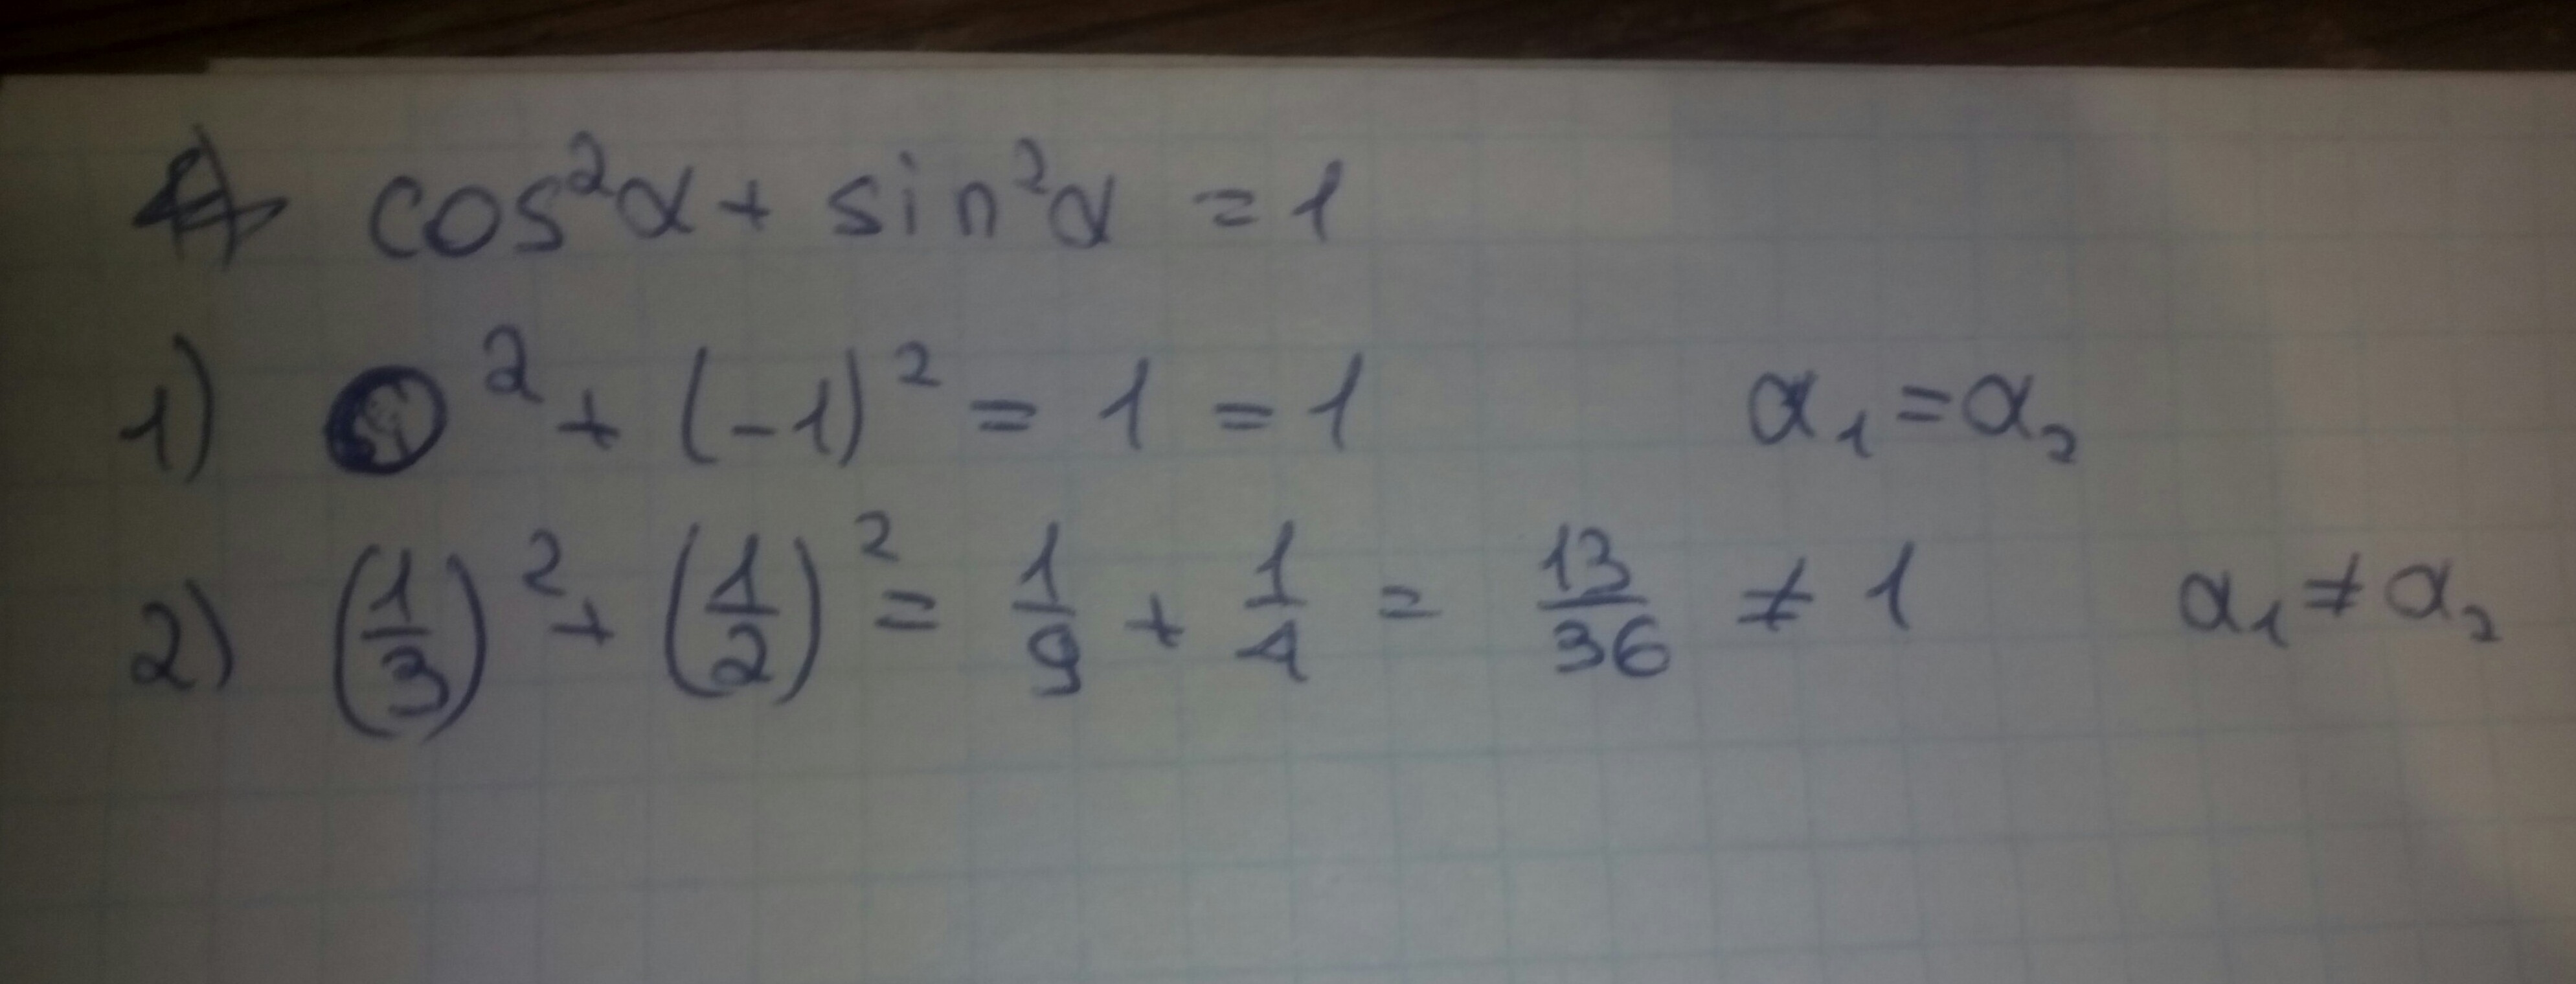 cos²α + sin²α = 1
1) 0² + (-1)² = 1 = 1 α₁ = α₂
2) (1/3)² + (1/2)² = 1/9 + 1/4 = 13/36 ≠ 1 α₁ ≠ α₂